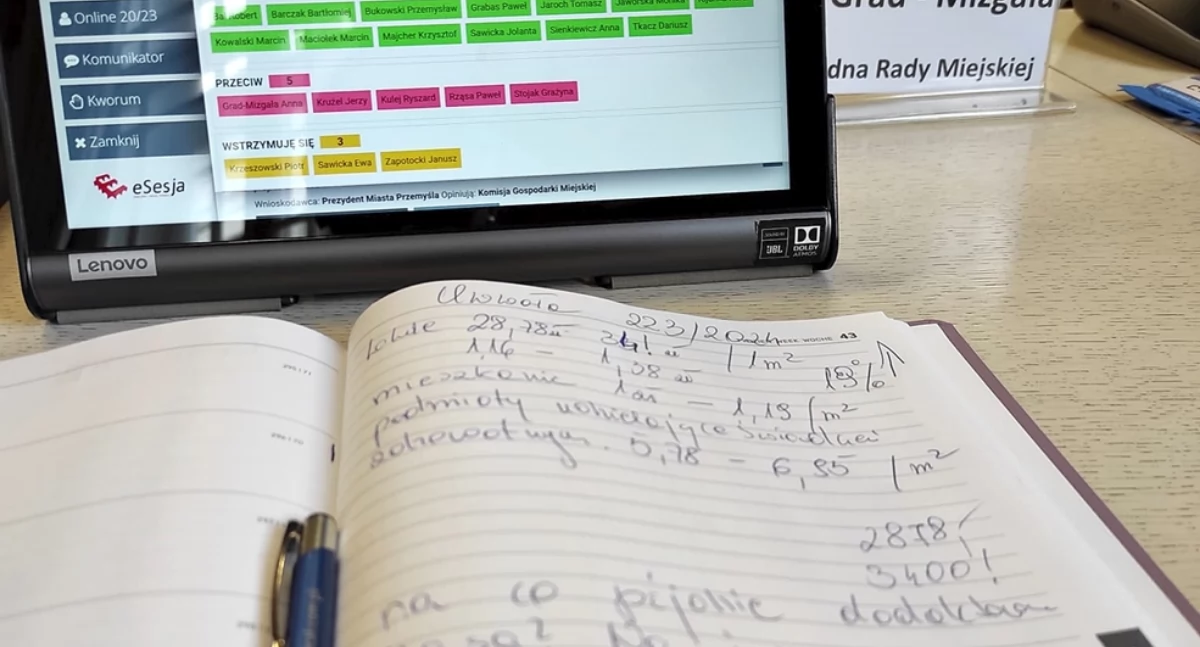 Online 20/23
Komunikator
Kworum
Zamknij
eSesja
Robert Barczak Bartłomiej Bukowski Przemysław Grabas Paweł Jaroch Tomasz
Kowalski Marcin Maciołek Marcin Majcher Krzysztof Sawicka Jolanta Sienkiewicz Anna Tkacz Dariusz
PRZECIW 5
Grad-Mizgała Anna Krużel Jerzy Kulej Ryszard Rząsa Paweł Stojak Grażyna
WSTRZYMUJĘ SIĘ 3
Krzeszowski Piotr Sawicka Ewa Zapotocki Janusz
Wnioskodawca: Prezydent Miasta Przemyśla Opiniują: Komisja Gospodarki Miejskiej
Lenovo
JBL
DOLBY
ATMOS
Grad - Mizgała
dna Rady Miejskiej
Uchwała 223/2024
43
28,78 zł 34! zł /1m²
1,16 – 1,38 zł 19%
mieszkanie 1 – 1,19 /m²
podmioty
5,78 – 6,95 /m²
2878!
3400!
na co dodatkowe